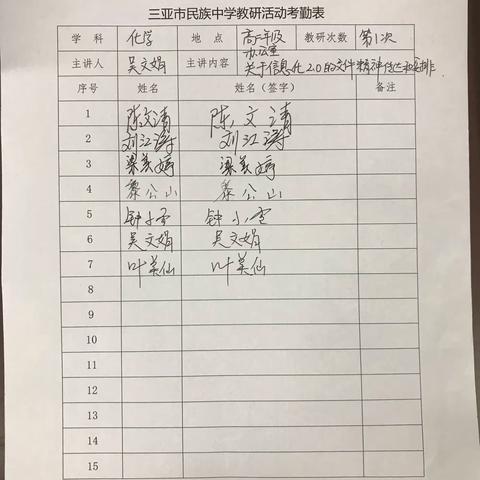 三亚市民族中学教研活动考勤表
学 科 化学 地 点 高二年级办公室 教研次数 第1次
主讲人 吴文娟 主讲内容 关于信息化2.0的文件精神传达和安排
序号 姓名 姓名（签字） 备注
1 陈文清 陈文清
2 刘江涛 刘江涛
3 梁美婷 梁美婷
4 黎公山 黎公山
5 钟小雪 钟小雪
6 吴文娟 吴文娟
7 叶美仙 叶美仙
8
9
10
11
12
13
14
15